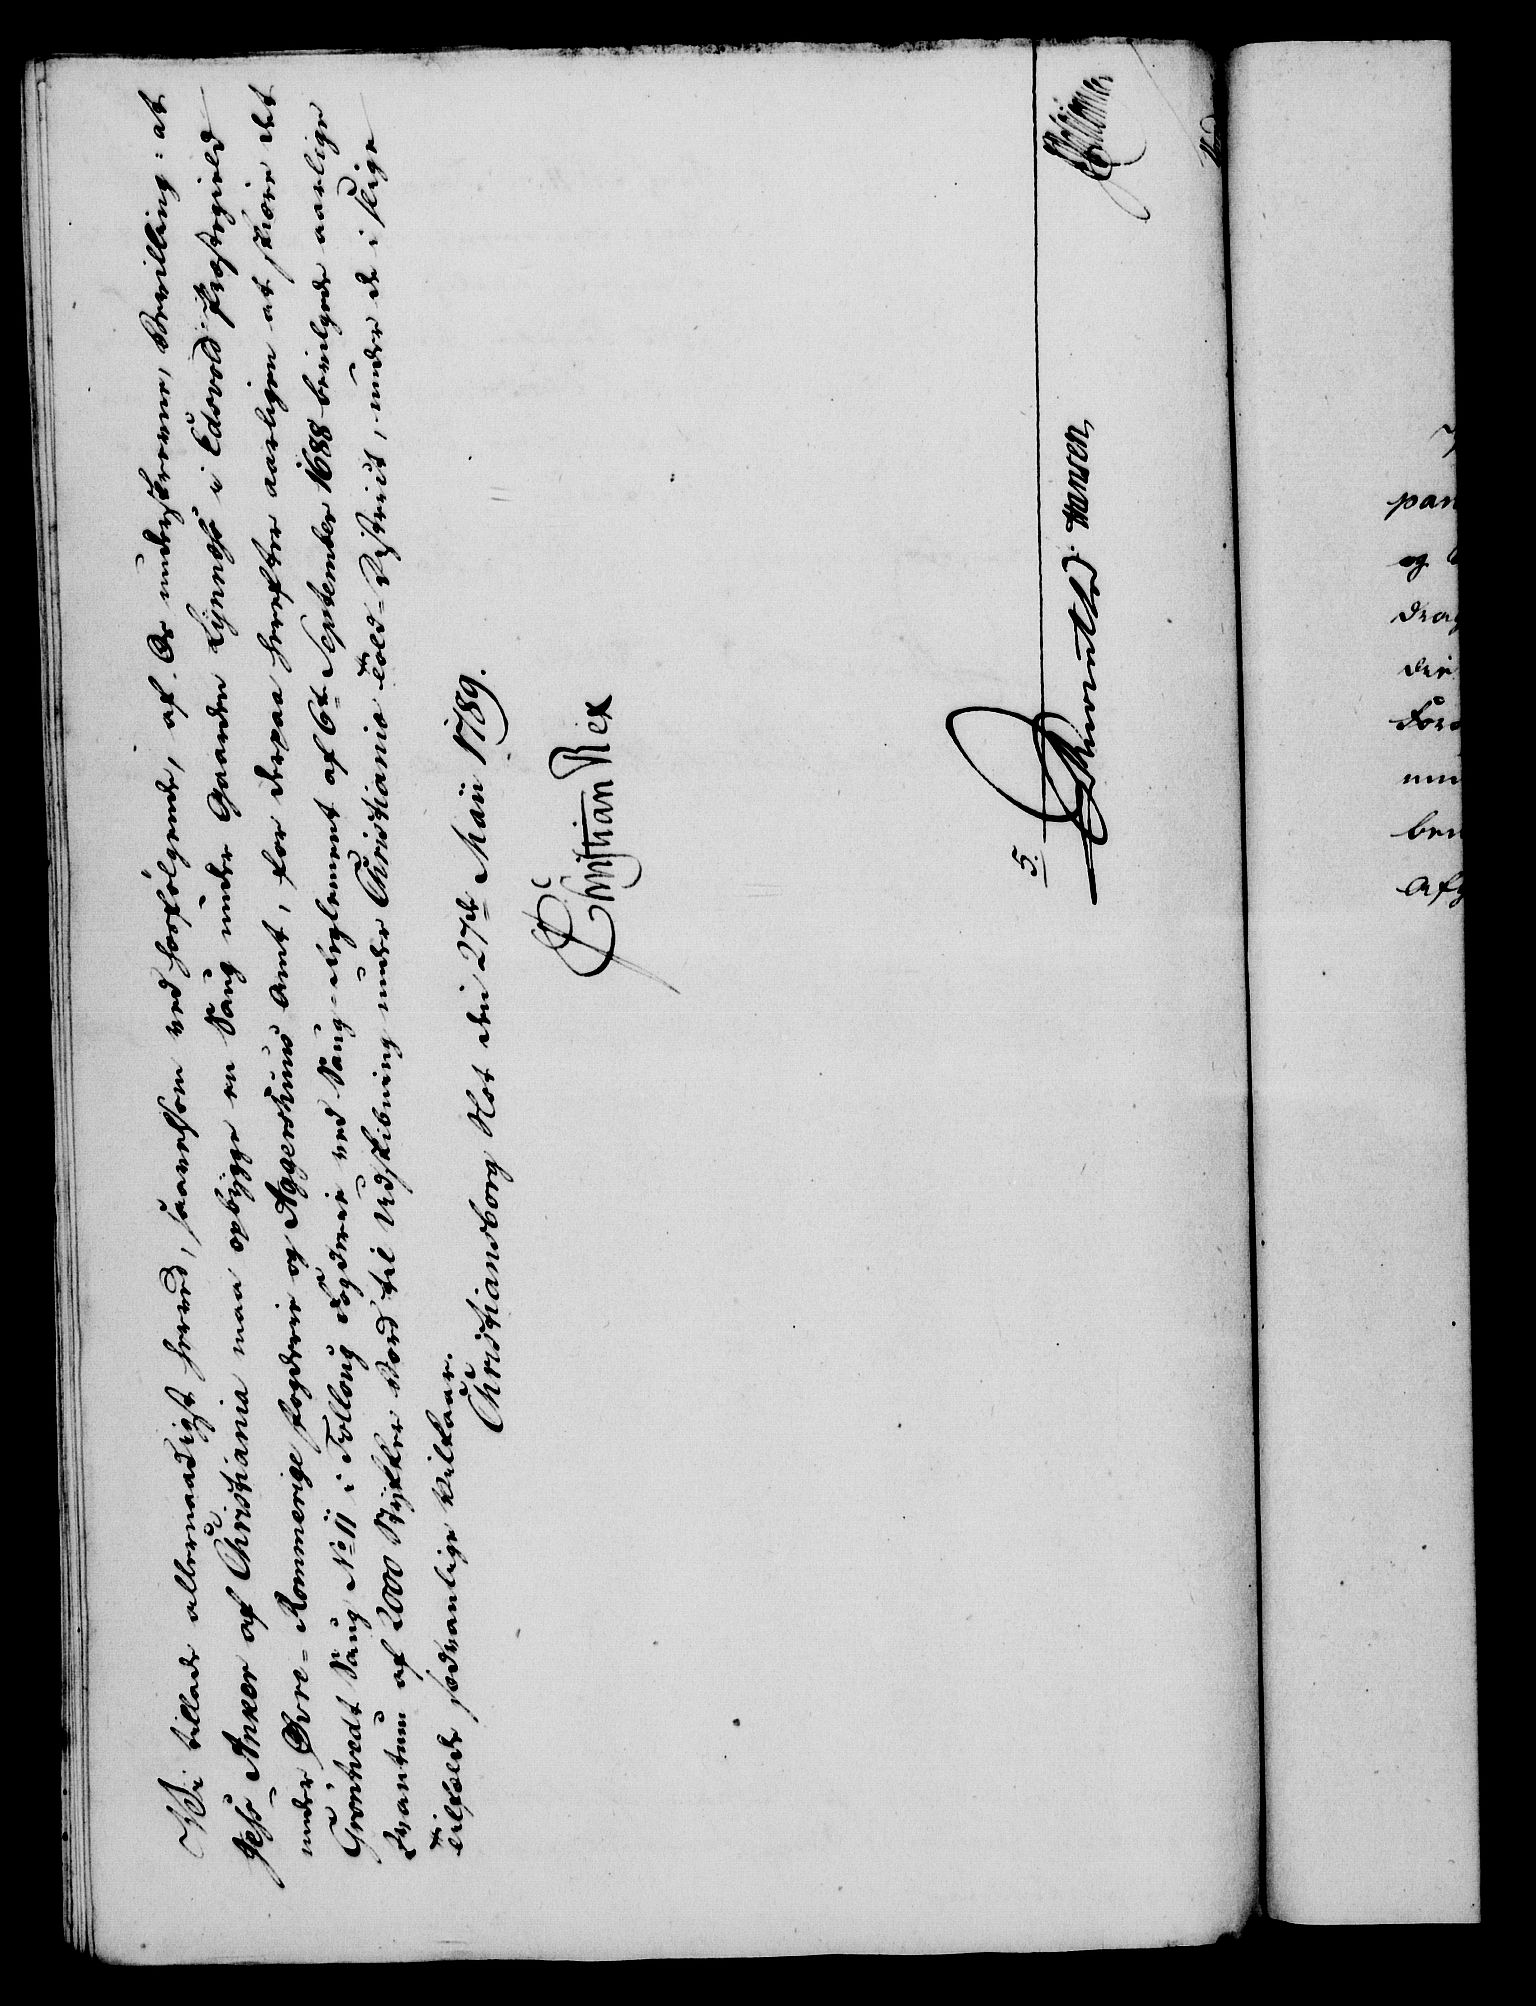 Vi tillade allernaadigst hermed, saavelsom ved hosfølgende, af Os underskrevne, Bevilling: at
Jess Anker af Christiania maa opbygge en Saug under Gaarden Lÿnnæss i Eidsvold Præstegield
under Øvre-Rommerige fogderie og Aggershuus Amt, for derpaa herefter aarligen at skiære det
Grontvedt Saug No 11 i Folloug Fogderie ved Saug-Reglement af 6t September 1688 bevilgede aarlige
Qvantum af 2000 Stÿkker Bord til Udskibning under Christiania Told-District, under de i slige
Tilfælde sædvanlige Vilkaar.
Christiansborg Slot den 27de Maii 1789.
Christian Rex
5.
Hansen
pan
og
drag
die
For
ben
Afg